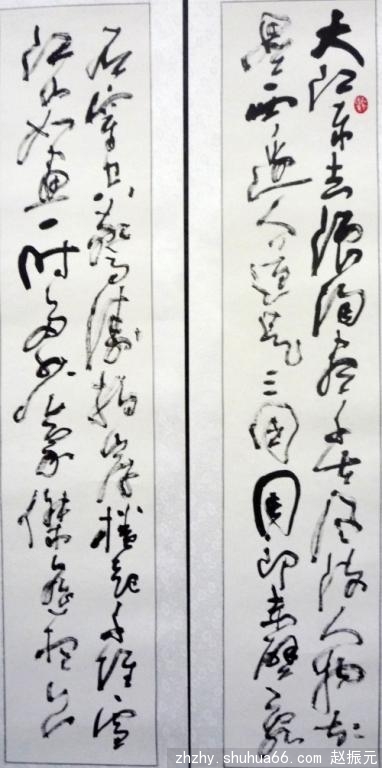 大江东去浪淘尽千古风流人物故
壘西邊人道是三國周郎赤壁亂
石穿空驚濤拍岸捲起千堆雪
江山如畫一时多少豪傑遥想公
zhzhy.shuhua66.com 赵振元